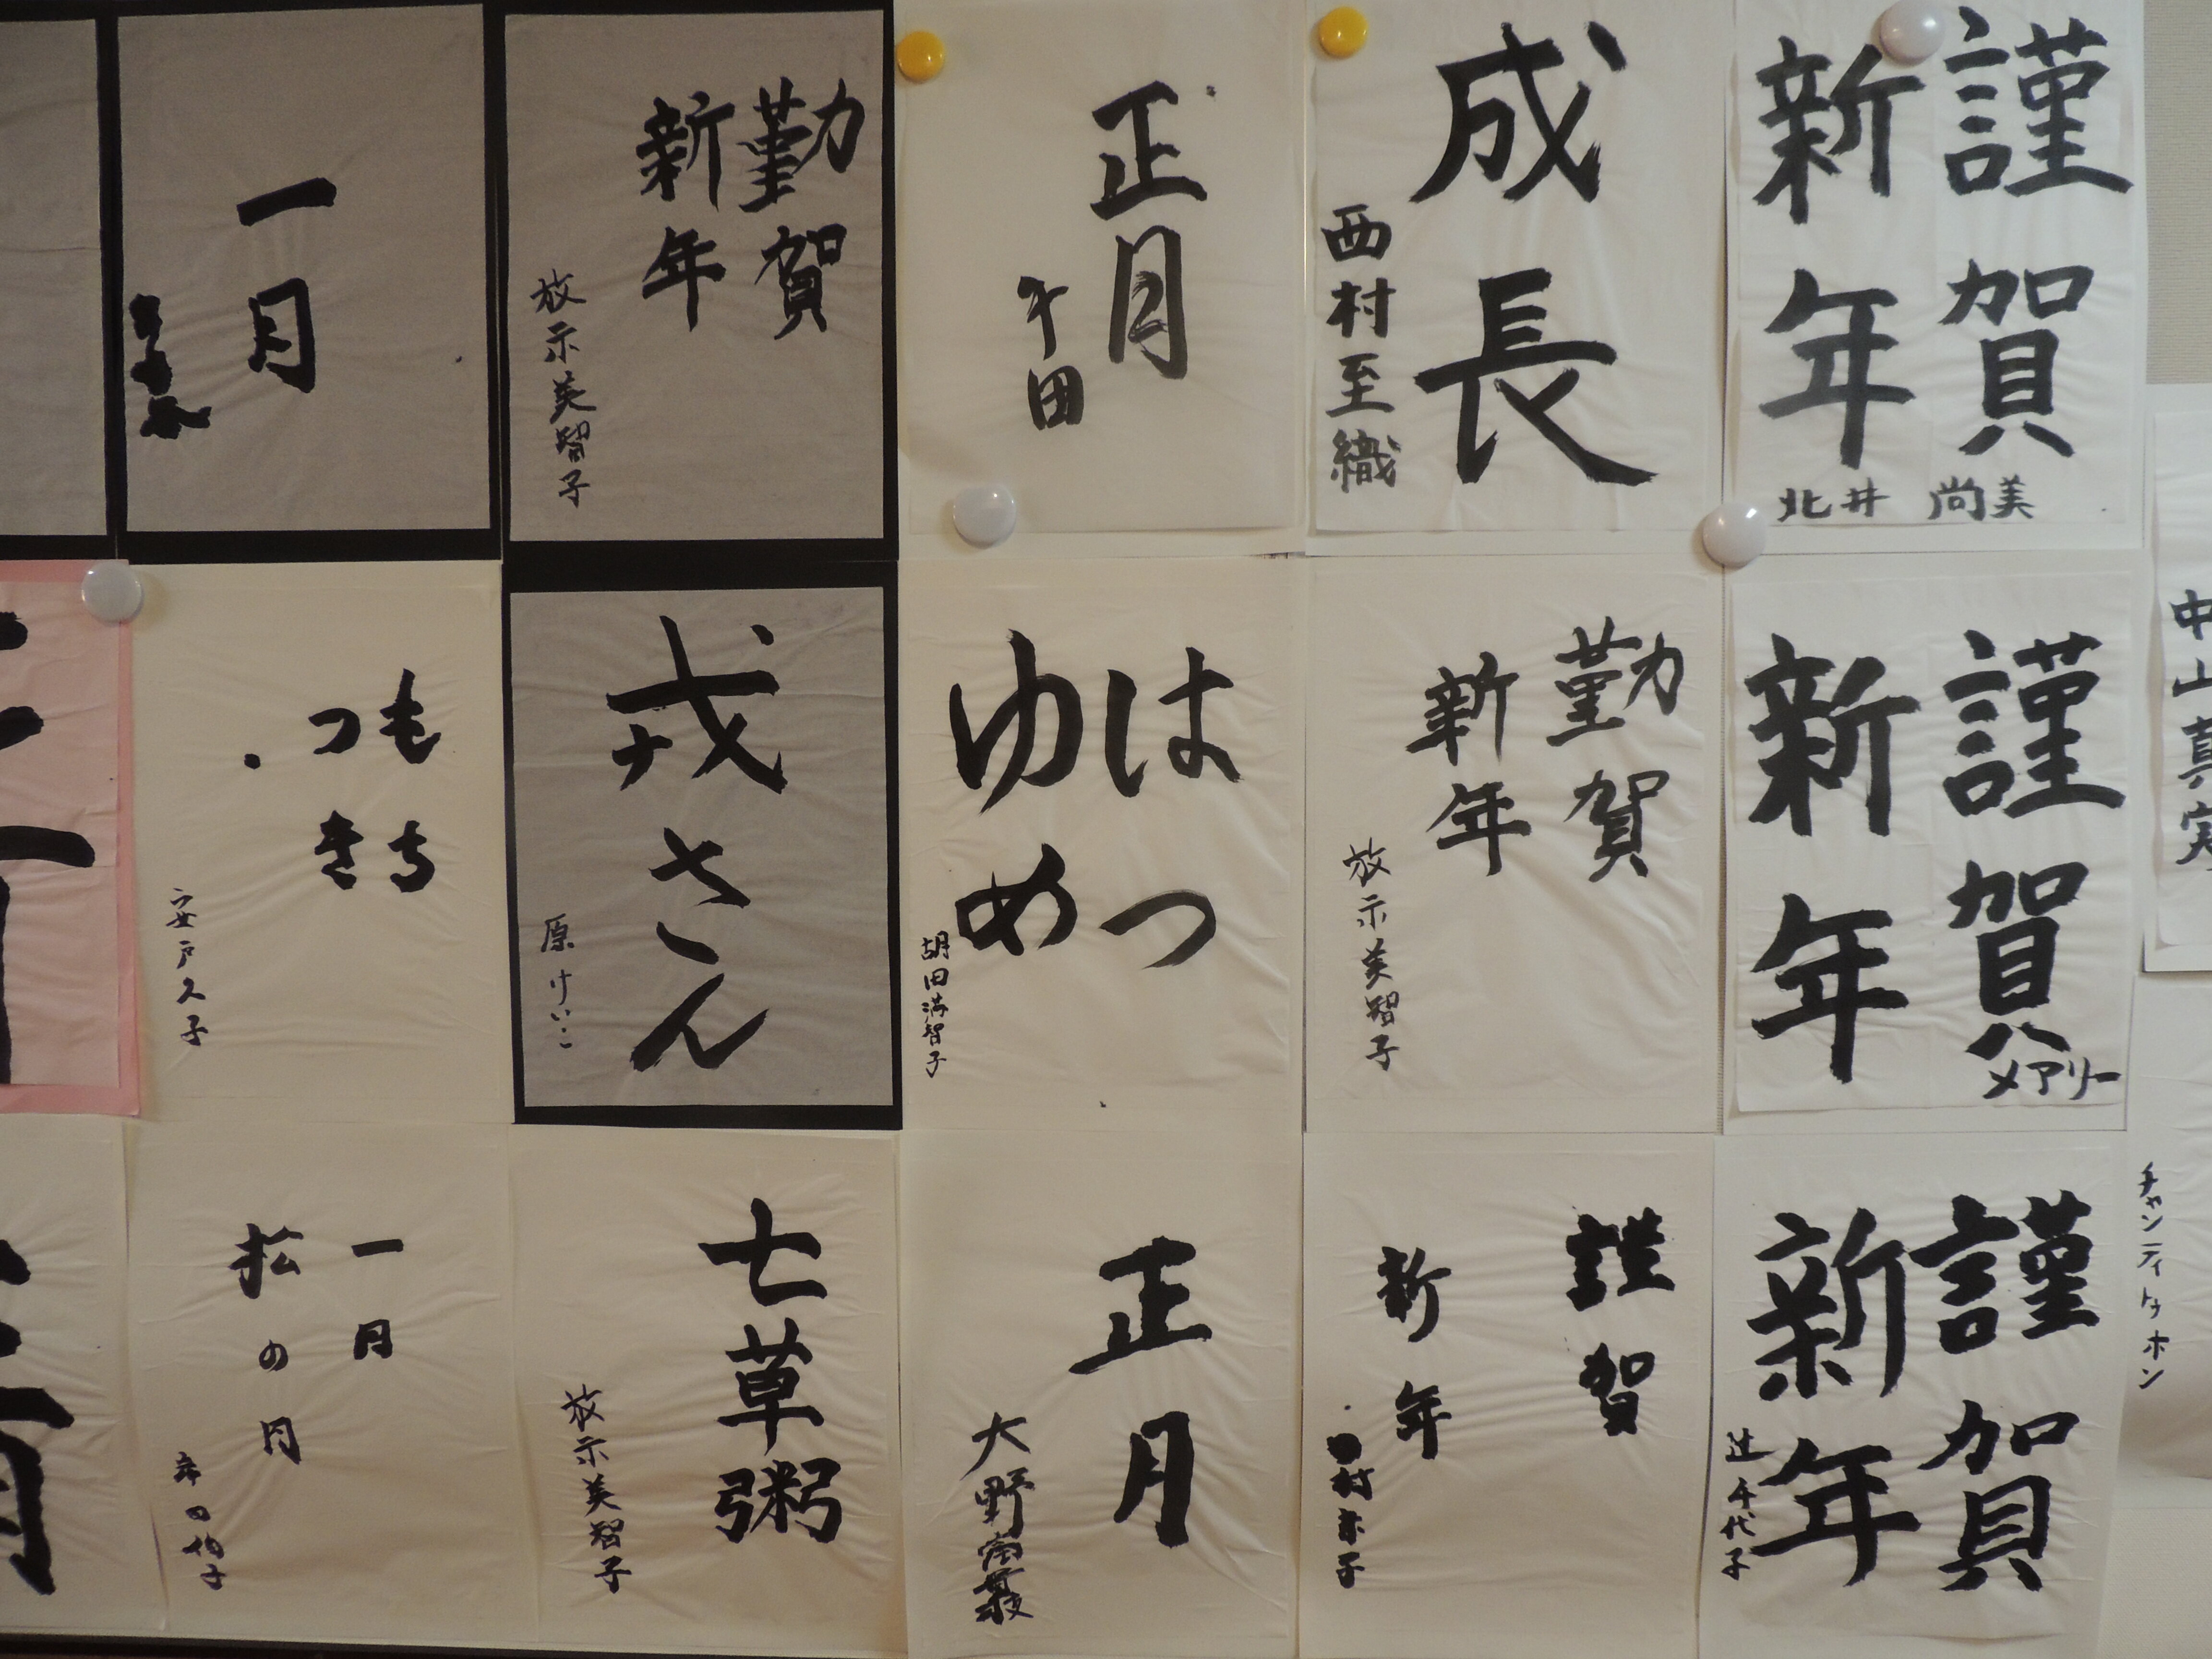 謹賀
新年
北井 尚美
成長
西村至織
正月
午田
勤賀
新年
放示美智子
一月
中山真実
謹賀
新年
メアリー
勤賀
新年
放示美智子
はつ
ゆめ
胡田満智子
戎さん
原けいこ
もち
つき
安戸久子
チャンティトゥホン
謹賀
新年
辻千代子
謹賀
新年
正月
大野
七草粥
放示美智子
一月
松の内